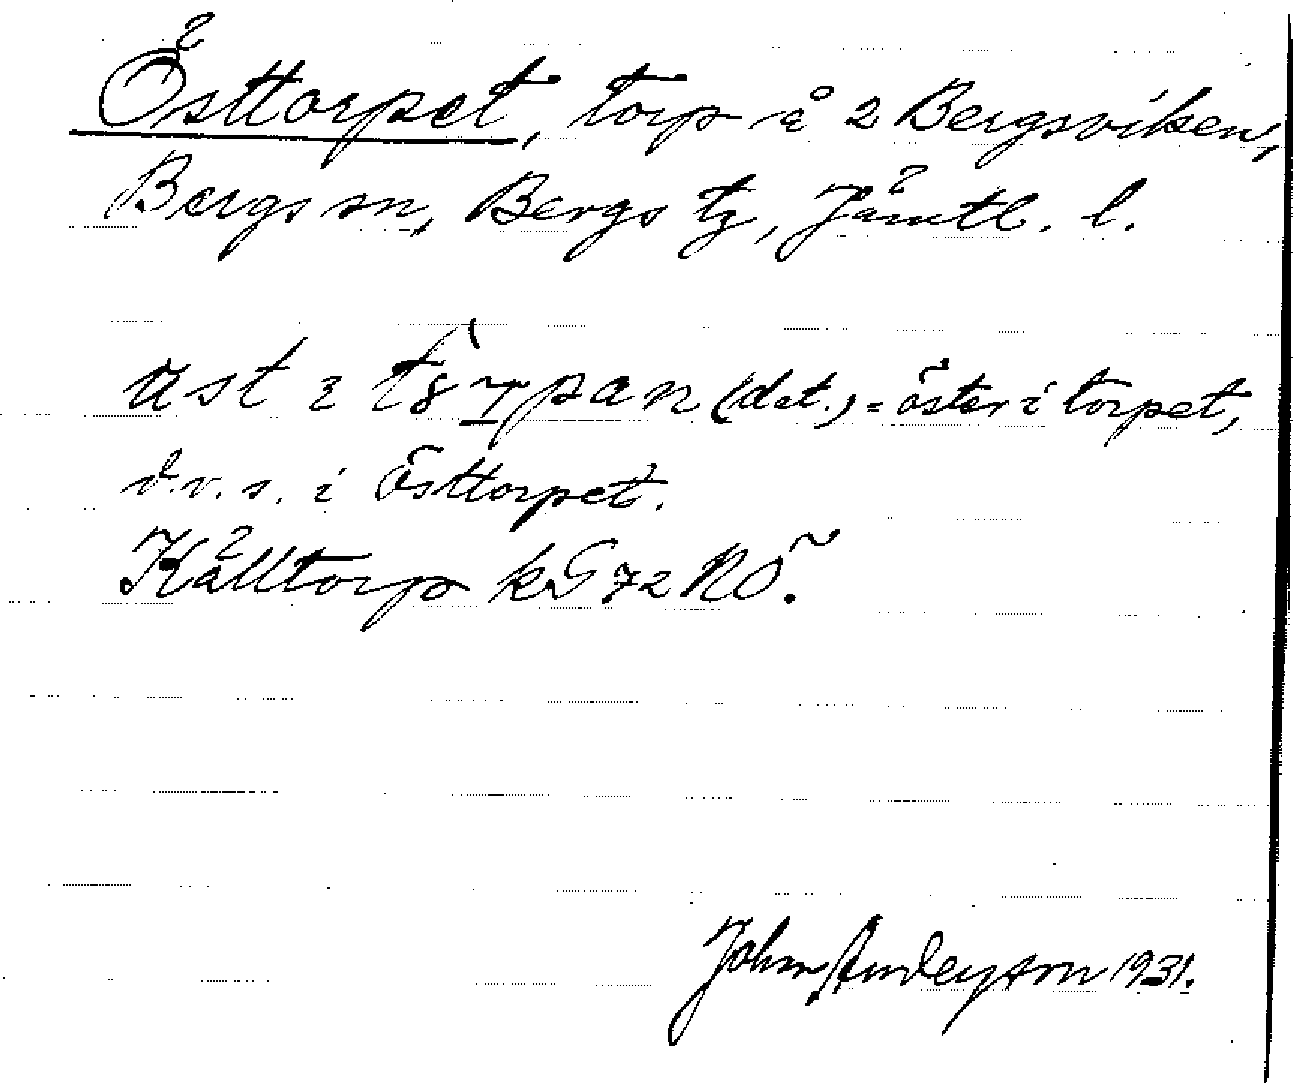 Östtorpet, torp å 2 Bergsviken,
Bergs sn, Bergs tg, Jämtl. l.
(dat.) = öster i torpet,
d.v.s. i Östtorpet.
Källtorp kG 72 NO.
John Anderson 1931.